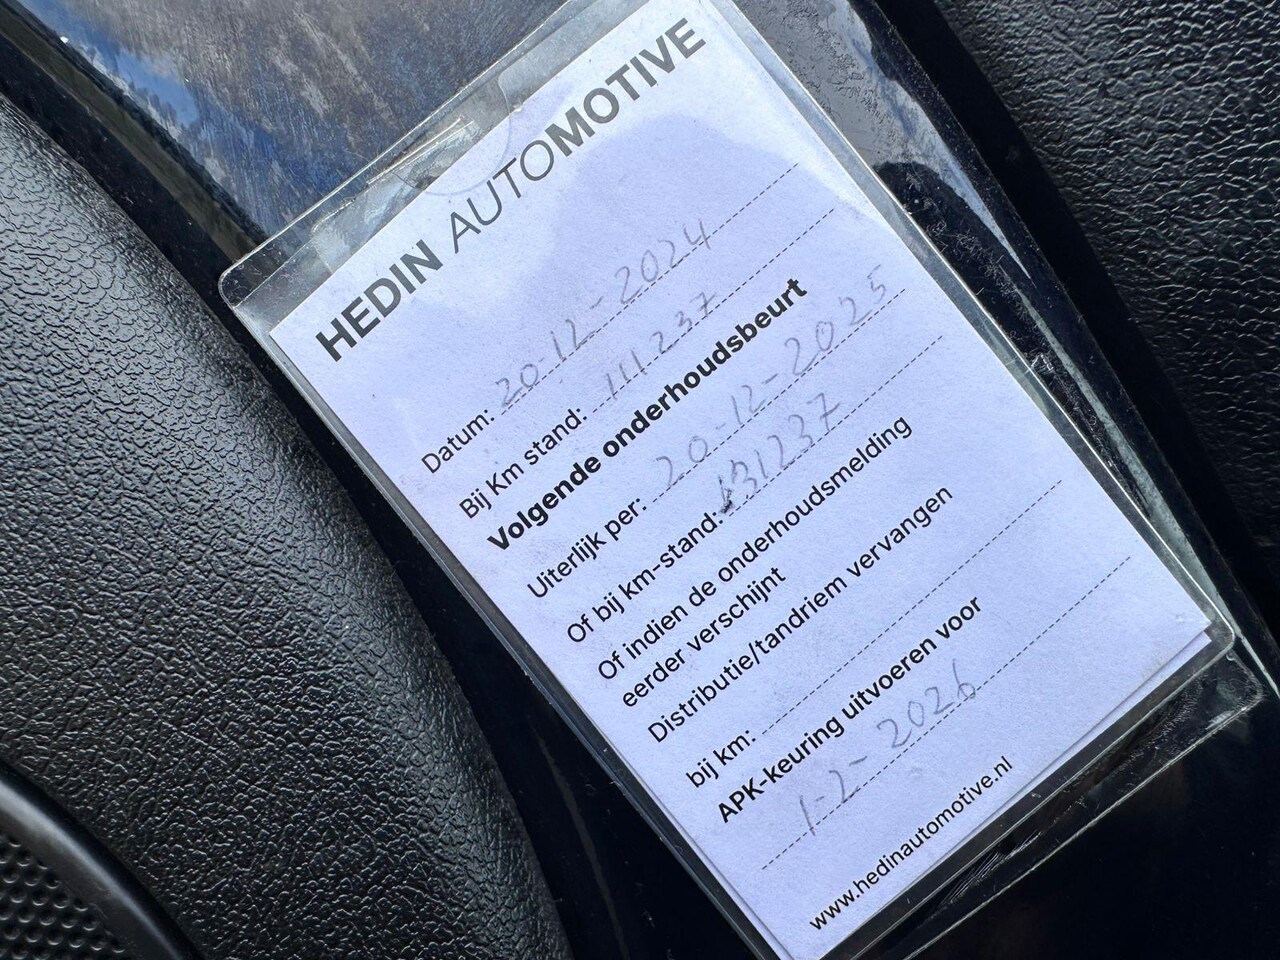 HEDIN AUTOMOTIVE
Datum: 20-12-2024
Bij Km stand: 111237
Volgende onderhoudsbeurt
Uiterlijk per: 20-12-2025
Of bij km-stand: 131237
Of indien de onderhoudsmelding
eerder verschijnt
Distributie/tandriem vervangen
bij km:
APK-keuring uitvoeren voor
1-2-2026
www.hedinautomotive.nl